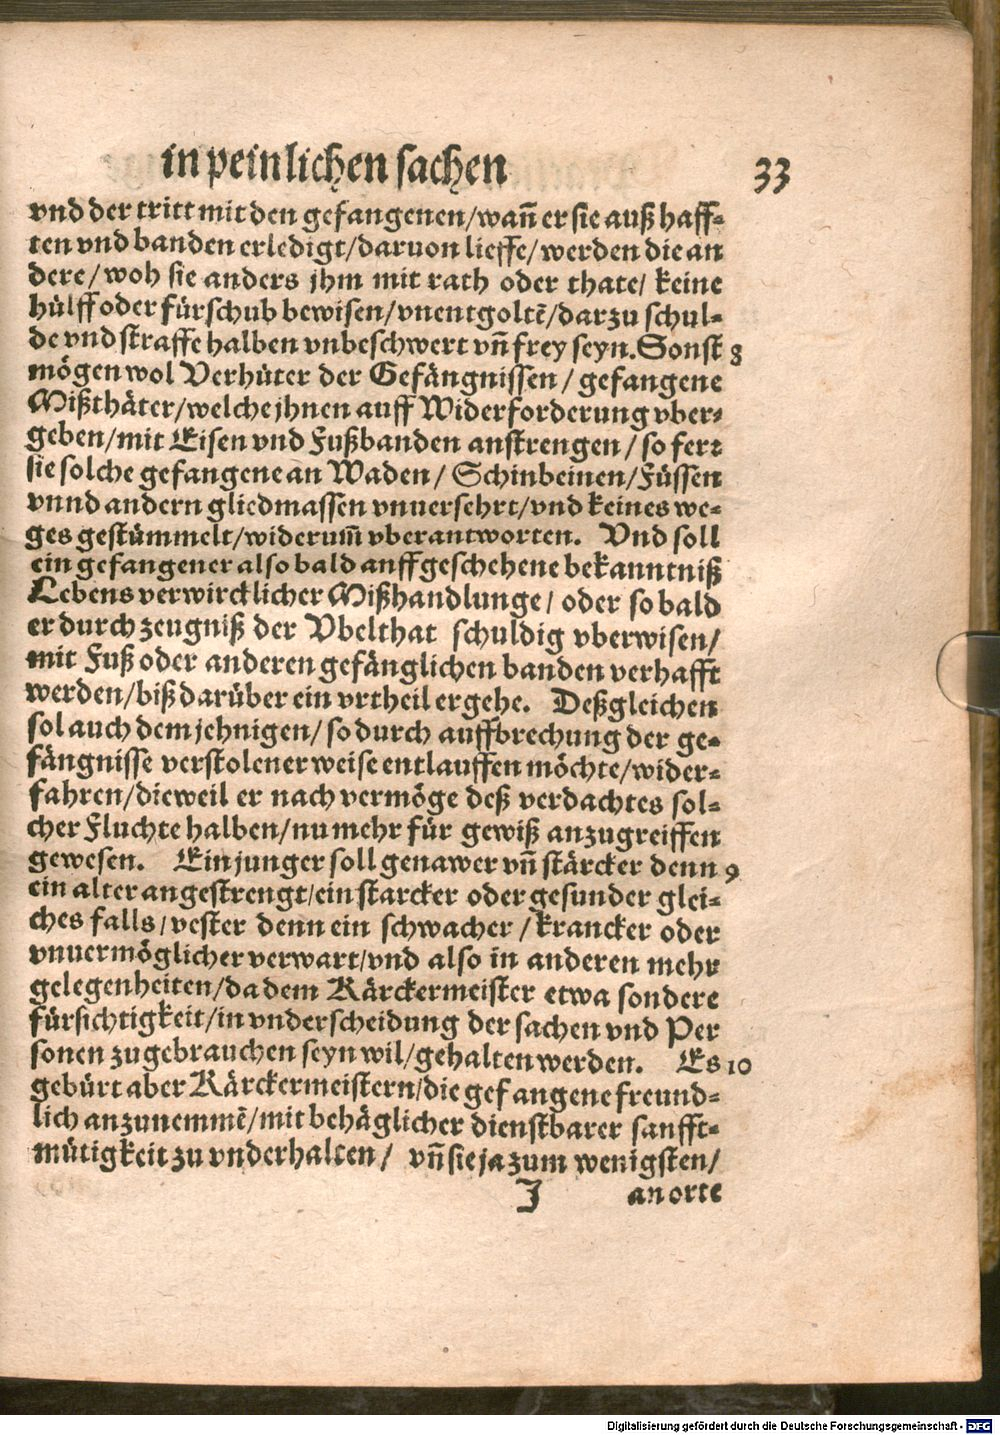 in peinlichen sachen 33
vnd der tritt mit den gefangenen/wañ er sie auß haff-
ten vnd banden erledigt/daruon lieffe/werden die an
dere/woh sie anders jhm mit rath oder thate/ keine
hülff oder fürschub bewisen/vnentgoltē/darzu schul-
de vnd straffe halben vnbeschwert vñ frey seyn. Sonst 8
mögen wol Verhüter der Gefängnissen/ gefangene
Mißthäter/welche jhnen auff Widerforderung vber-
geben/mit Eisen vnd Fußbanden anstrengen/ so ferr
sie solche gefangene an Waden/ Schinbeinen/Füssen
vnnd andern gliedmassen vnuersehrt/vnd keines we-
ges gestümmelt/widerum̃ vberantworten. Vnd soll
ein gefangener also bald auff geschehene bekanntniß
Lebens verwircklicher Mißhandlunge/ oder so bald
er durch zeugniß der Vbelthat schuldig vberwisen/
mit Fuß oder anderen gefänglichen banden verhafft
werden/biß darüber ein vrtheil ergehe. Deßgleichen
sol auch dem jehnigen/ so durch auffbrechung der ge-
fängnisse verstolener weise entlauffen möchte/wider-
fahren/dieweil er nach vermöge deß verdachtes sol-
cher Fluchte halben/nu mehr für gewiß anzugreiffen
gewesen. Ein junger soll genawer vñ stärcker denn 9
ein alter angestrengt/ein starcker oder gesunder glei-
ches falls/vester denn ein schwacher/krancker oder
vnuermöglicher verwart/vnd also in anderen mehr
gelegenheiten/da dem Kärckermeister etwa sondere
fürsichtigkeit/in vnderscheidung der sachen vnd Per
sonen zugebrauchen seyn wil/gehalten werden. Es 10
gebürt aber Kärckermeistern/die gefangene freund-
lich anzunemmē/mit behäglicher dienstbarer sanfft-
mütigkeit zu vnderhalten/ vñ sie ja zum wenigsten/
J an orte
Digitalisierung gefördert durch die Deutsche Forschungsgemeinschaft - DFG